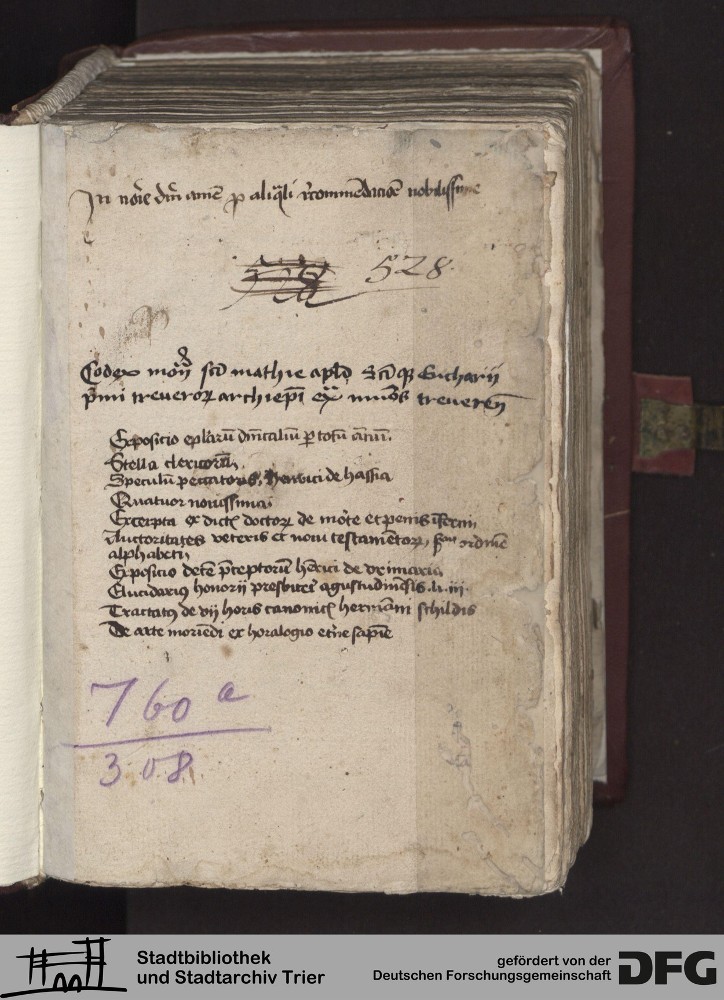 In noīe dm̄ amē p aliq̄li r̄commēdacioē nobilissime
528
Codex mon̄ sc̄i mathie apl̄i Sc̄iq̨ Eucharii
p̄mi treueroꝝ archiep̄i ex̄ muros treueren̄
Exposicio ep̄larū dn̄icaliū p totū annū.
Stella clericorū.
Speculū peccatoris, henrici de hassia
Quatuor nouissima
Excerpta ex dictis doctoꝝ de morte et penis inferni
Auctoritates veteris et noui testamentoꝝ, scd̄m ordinē
alphabeti
Exposicio decē p̄ceptorum hērici de vrimaria
Elucidarius honorii presbiteri agustudinēsis .li. iii.
Tractatus de vij horis canonicis hermāni schildis
De arte moriēdi ex horalogio et̄ne sapiē
760 a
308.
Stadtbibliothek
und Stadtarchiv Trier
gefördert von der
Deutschen Forschungsgemeinschaft
DFG